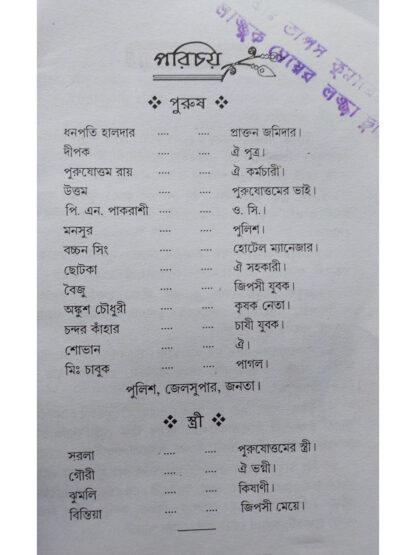 তাপস কুমার
লাজুক মেয়ের লজ্জা
পরিচয়
❖ পুরুষ ❖
ধনপতি হালদার .... .... প্রাক্তন জমিদার।
দীপক .... .... ঐ পুত্র।
পুরুষোত্তম রায় .... .... ঐ কর্মচারী।
উত্তম .... .... পুরুষোত্তমের ভাই।
পি. এন. পাকরাশী .... .... ও. সি.।
মনসুর .... .... পুলিশ।
বচ্চন সিং .... .... হোটেল ম্যানেজার।
ছোটকা .... .... ঐ সহকারী।
বৈজু .... .... জিপসী যুবক।
অঙ্কুশ চৌধুরী .... .... কৃষক নেতা।
চন্দর কাঁহার .... .... চাষী যুবক।
শোভান .... .... ঐ।
মিঃ চাবুক .... .... পাগল।
পুলিশ, জেলসুপার, জনতা।
❖ স্ত্রী ❖
সরলা .... .... পুরুষোত্তমের স্ত্রী।
গৌরী .... .... ঐ ভগ্নী।
ঝুমলি .... .... কিষাণী।
বিন্তিয়া .... .... জিপসী মেয়ে।